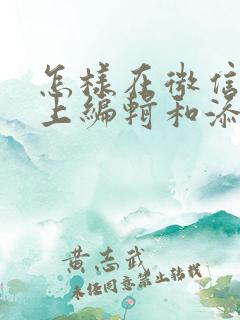 怎样在微信
上编辑和添
黄志武
未经同意禁止转载